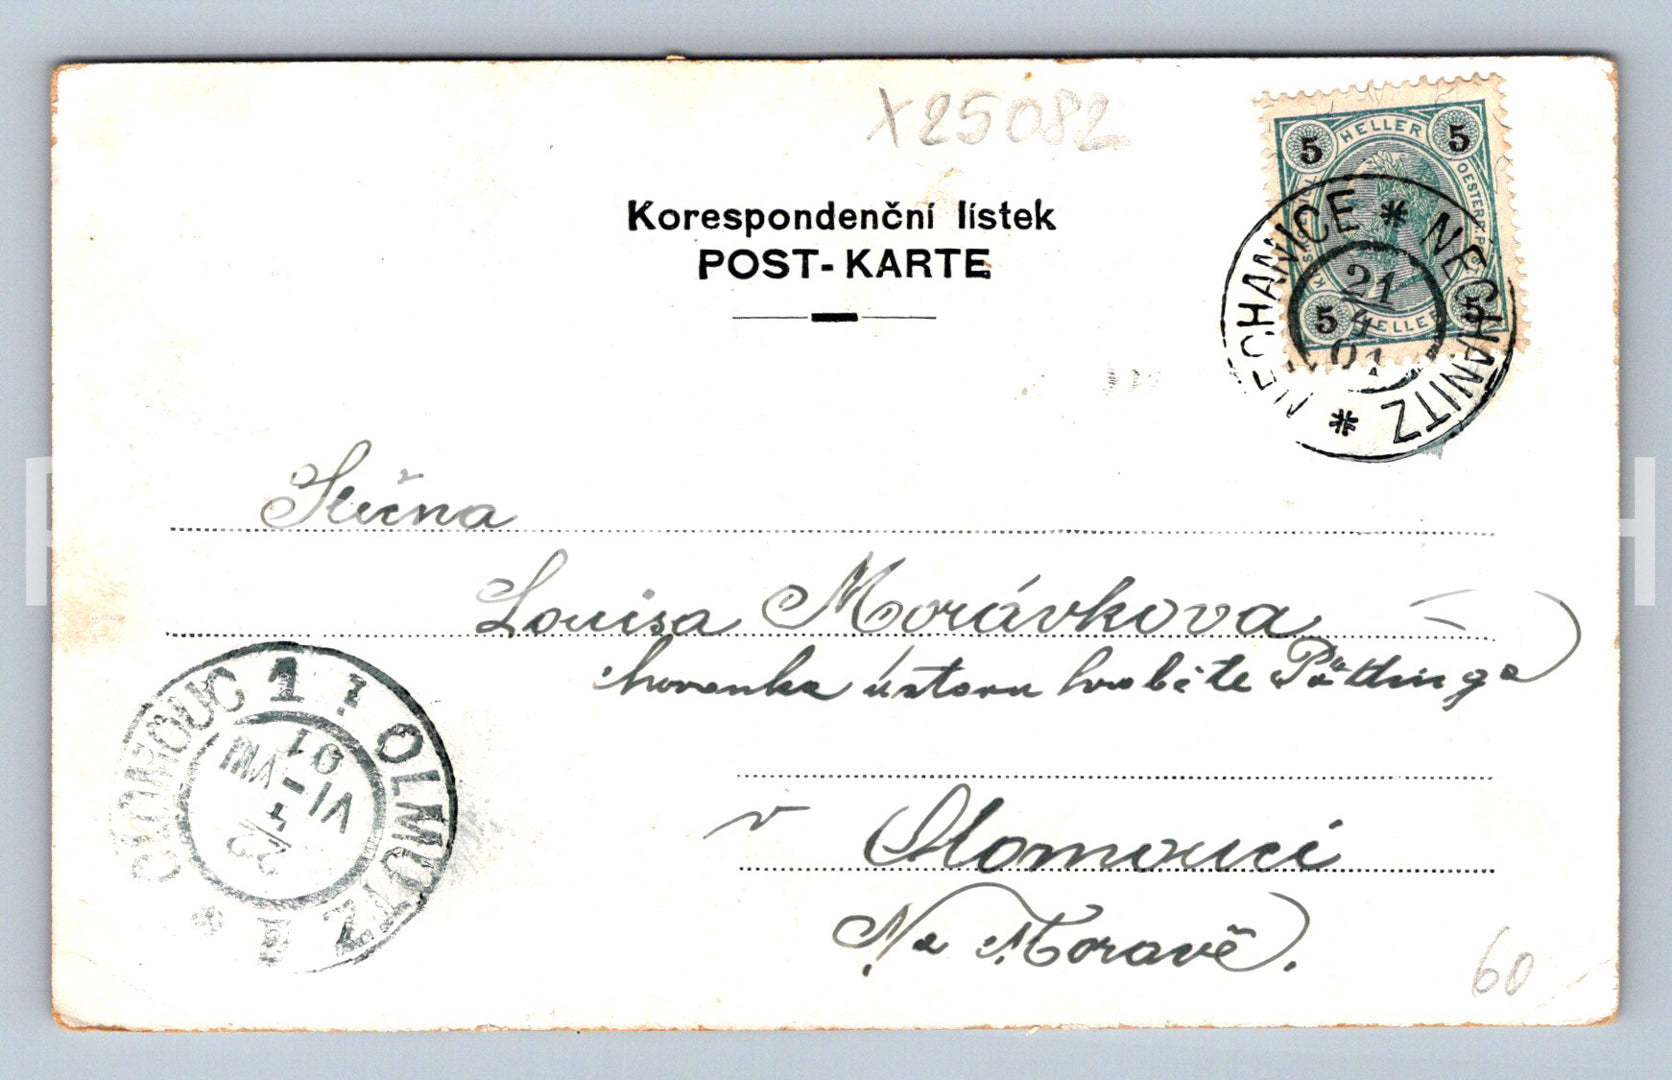 X25082
Korespondenční lístek
POST-KARTE
5 HELLER 5
5 HELLER 5
NECHANICE * NECHANITZ *
21
4
01
Slečna
Louisa Morávkova
chovanka ústavu hraběte Pöttinga
v Olomouci
Na Moravě.
OLOMOUC 1 ! OLMÜTZ 1 *
22
4
VI-VIII
01
60